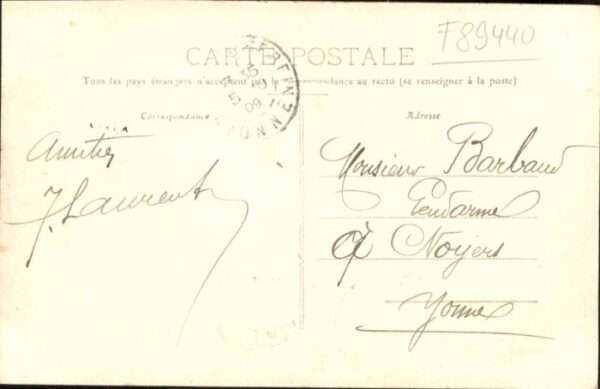 F89440
CARTE POSTALE
Tous les pays étrangers n'acceptent pas la correspondance au recto (se renseigner à la poste)
Correspondance
Adresse
Amitiés
J. Laurent
Monsieur Barbaud
Gendarme
à Noyers
Yonne
09
YONNE